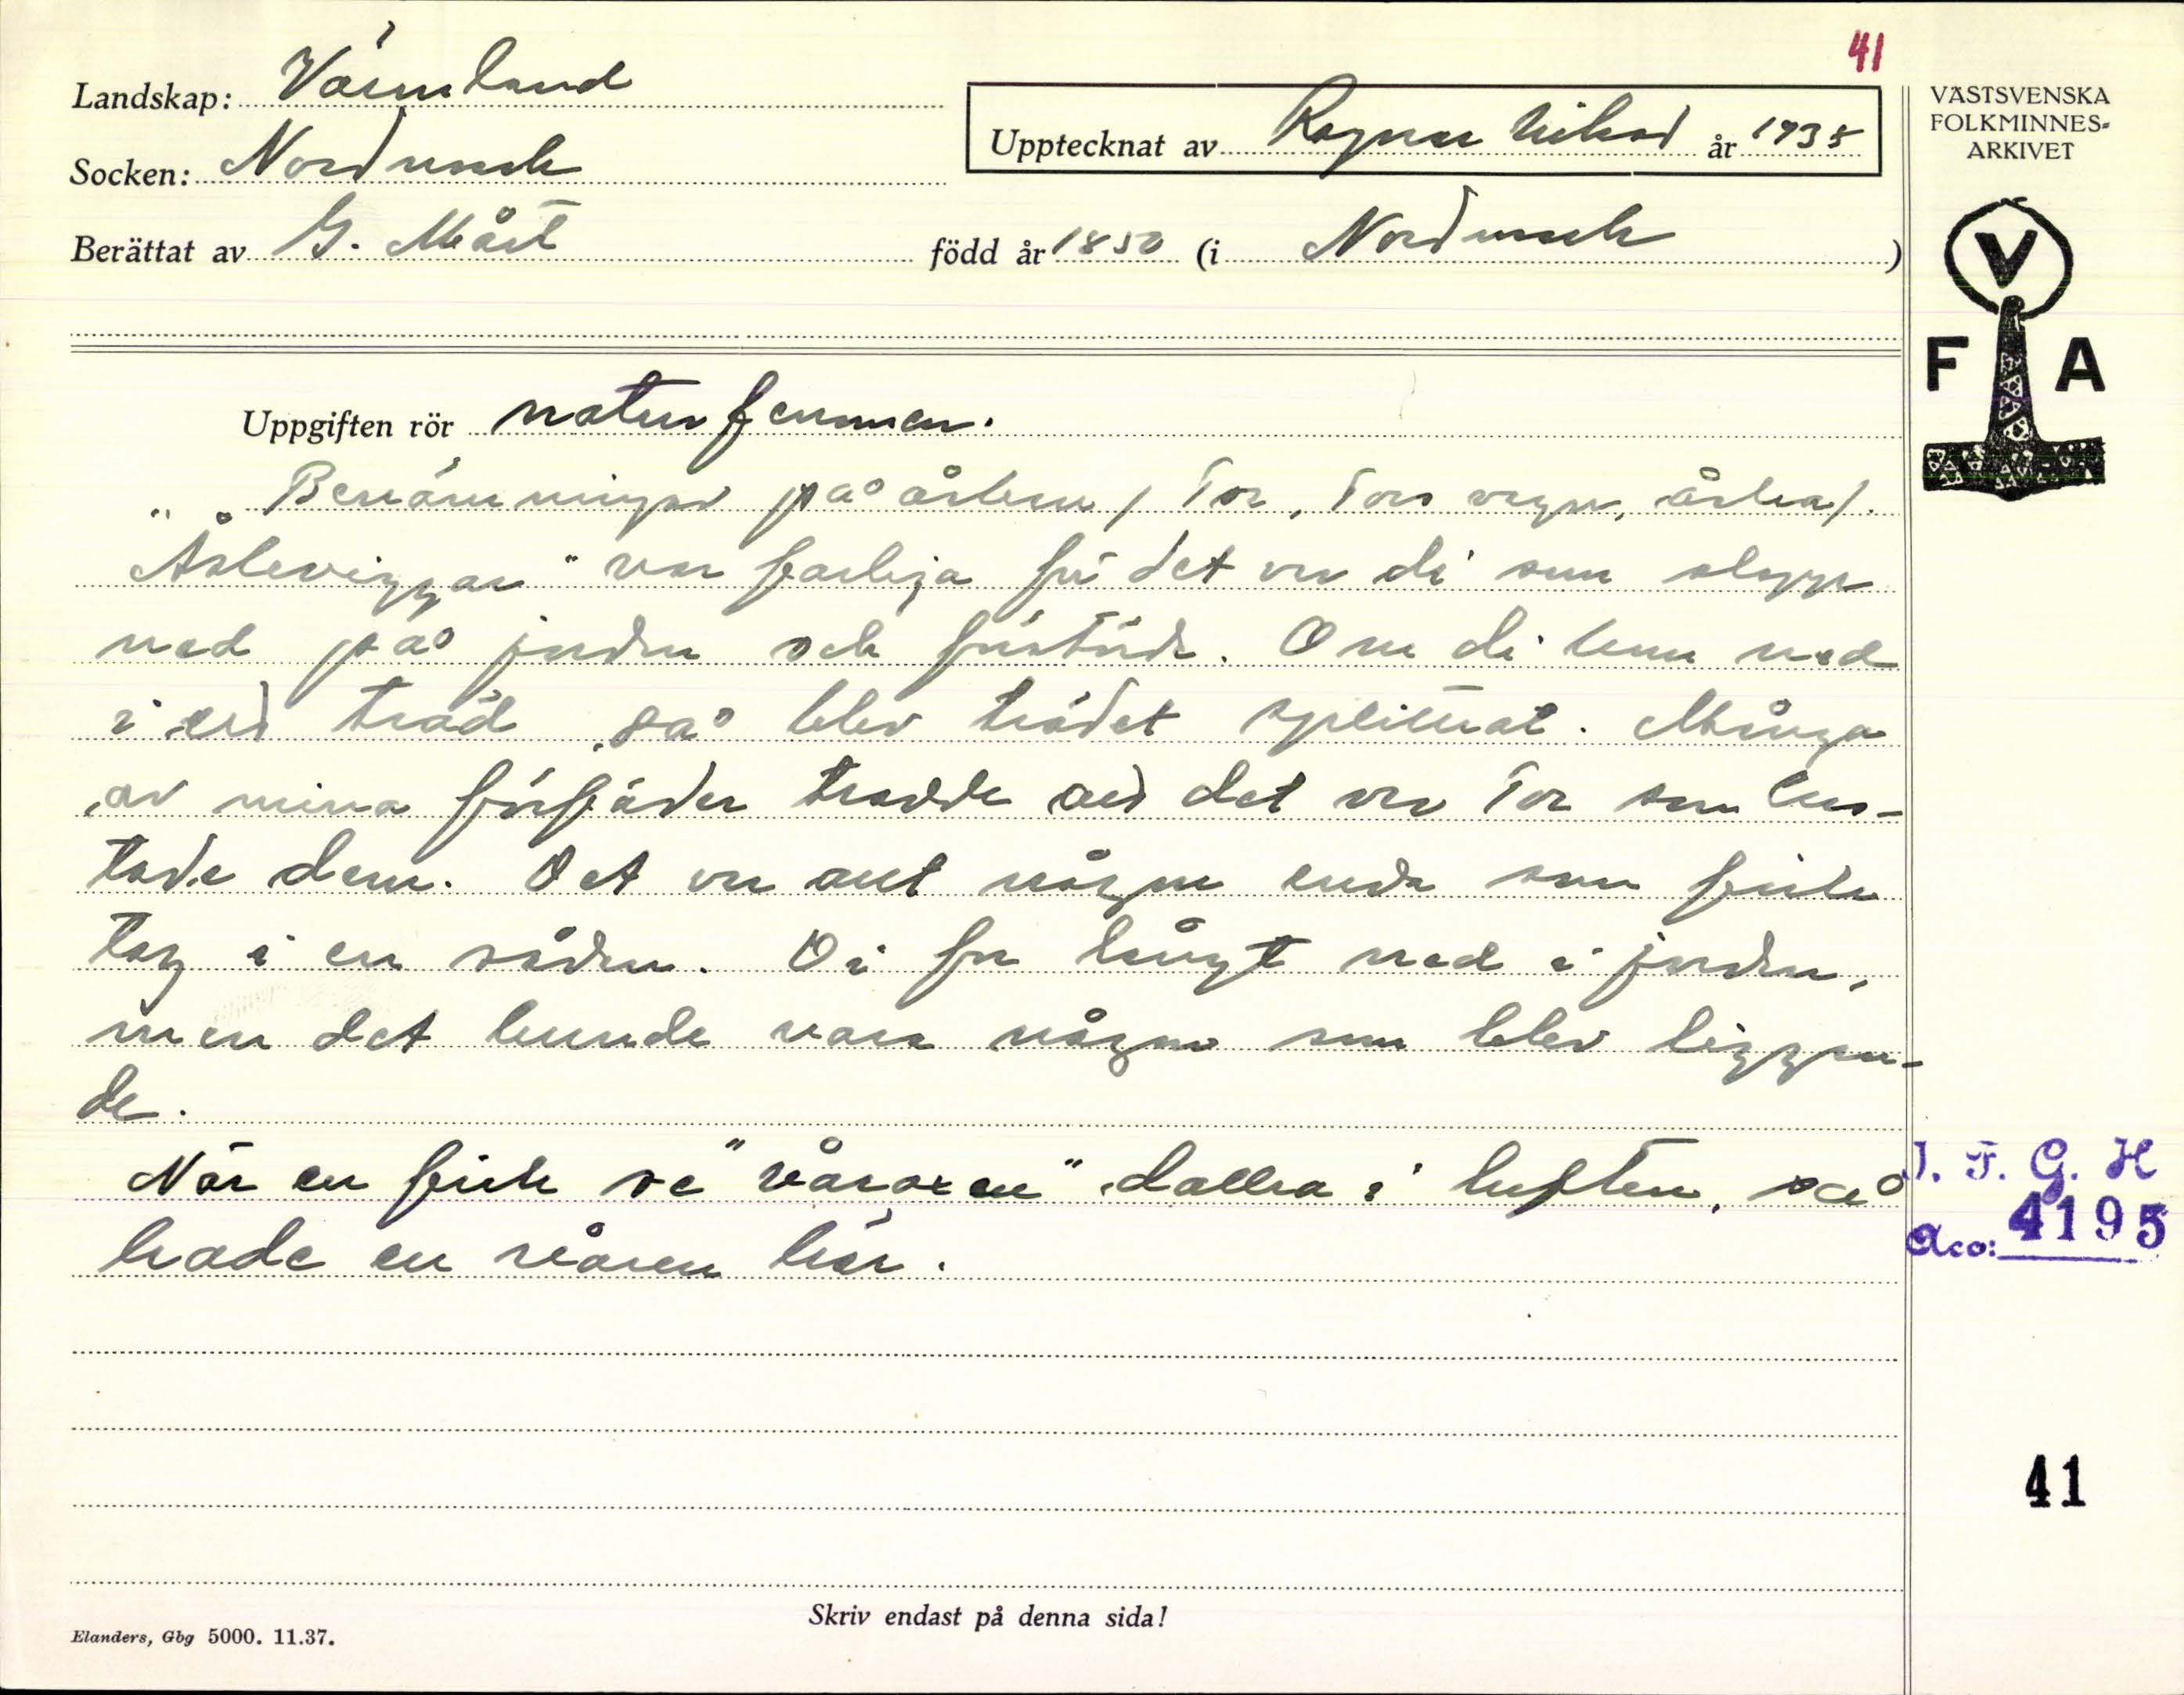 41
Landskap: Värmland
Upptecknat av Ragnar Nilsson år 1938
VÄSTSVENSKA
FOLKMINNES-
ARKIVET
Socken: Nordmark
Berättat av G. Mått född år 1850 (i Nordmark)
V
F A
Uppgiften rör naturfenomen.
Benämningar på åskan / Tor, Tors vagn, åska/.
"Åskeviggar" var farliga för det var di som slogo
ned på jorden och förstörde. Om di kom ned
i ett träd, så blev trädet splittrat. Många
av mina förfäder trodde att det var Tor som kas-
tade dem. Det var ant någon enda som fick
tag i en sådan. Di for långt ned i jorden,
men det kunde vara någon som blev liggan-
de.
När en fick se "våroxen" dallra i luften, så
hade en våren här.
I. F. G. H
Acc: 4195
41
Skriv endast på denna sida!
Elanders, Gbg 5000. 11.37.